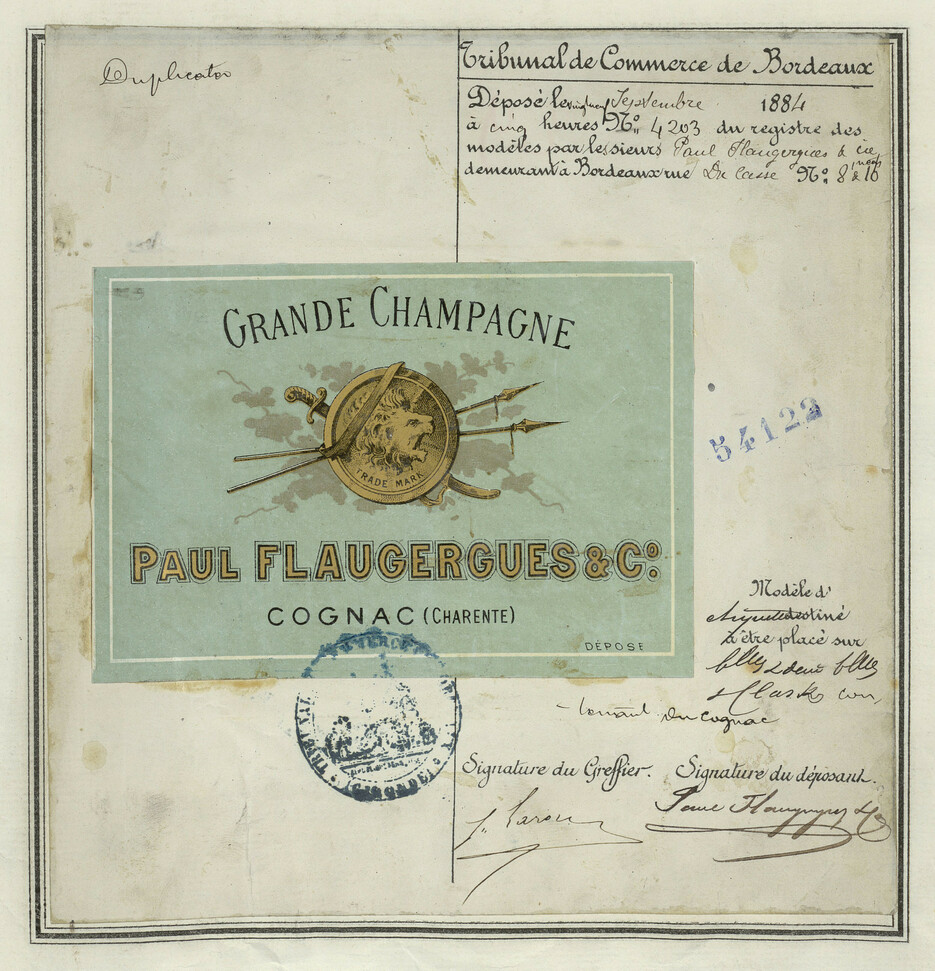 Duplicata
Tribunal de Commerce de Bordeaux
Déposé le vingt neuf Septembre 1884
à cinq heures No. 4203 du registre des
modèles par les sieurs Paul Flaugergues & Cie
demeurant à Bordeaux rue Du Casse No. 8 & 10
GRANDE CHAMPAGNE
TRADE MARK
PAUL FLAUGERGUES & Co.
COGNAC (CHARENTE)
DÉPOSÉ
54122
Modèle d'
étiquette destiné
à être placé sur
blles & demi blles
& flasks con-
-tenant du cognac
GIRONDE
Signature du Greffier. Signature du déposant.
Paul Flaugergues & Co